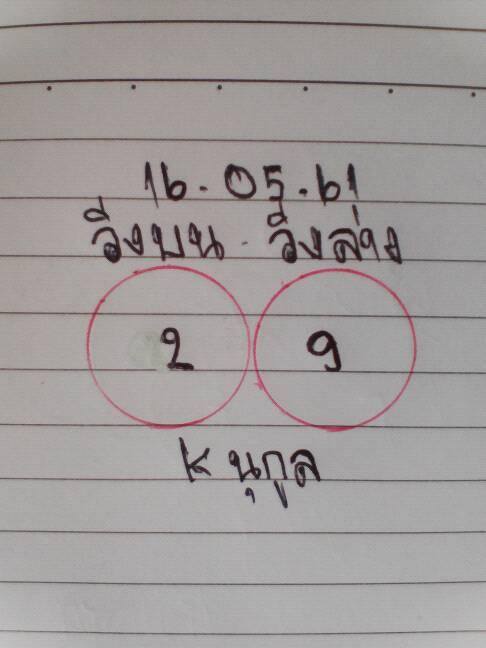 16.05.61
วิ่งบน - วิ่งล่าง
2 9
K นุกูล